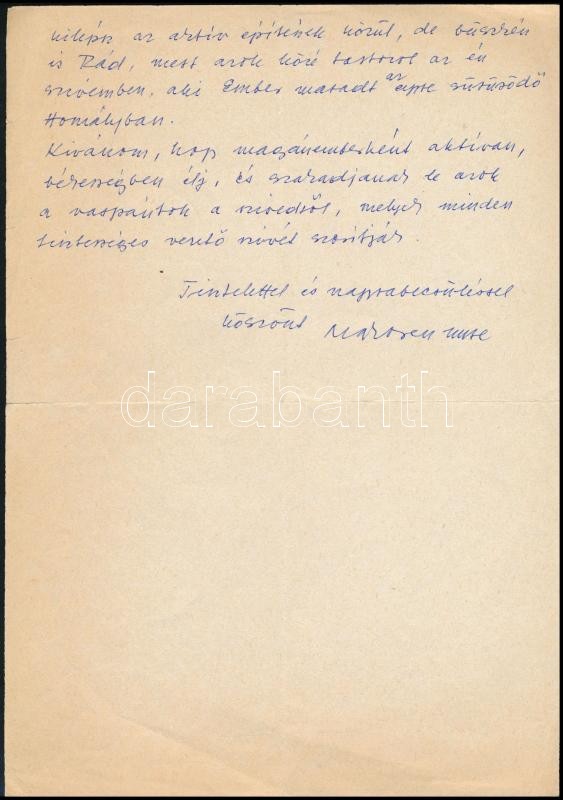 kilépsz az aktív építészek közül, de büszkén
is Rád, mert azok közé tartozol az én
szívemben, aki Ember maradt az egyre sűrűsödő
Homályban.
Kívánom, hogy magánemberként aktívan,
békességben élj, és szakadjanak le azok
a vaspántok a szívedről, melyek minden
tisztességes verető szívét szorítják.
Tisztelettel és nagyrabecsüléssel
köszönt Makovecz Imre
darabanth